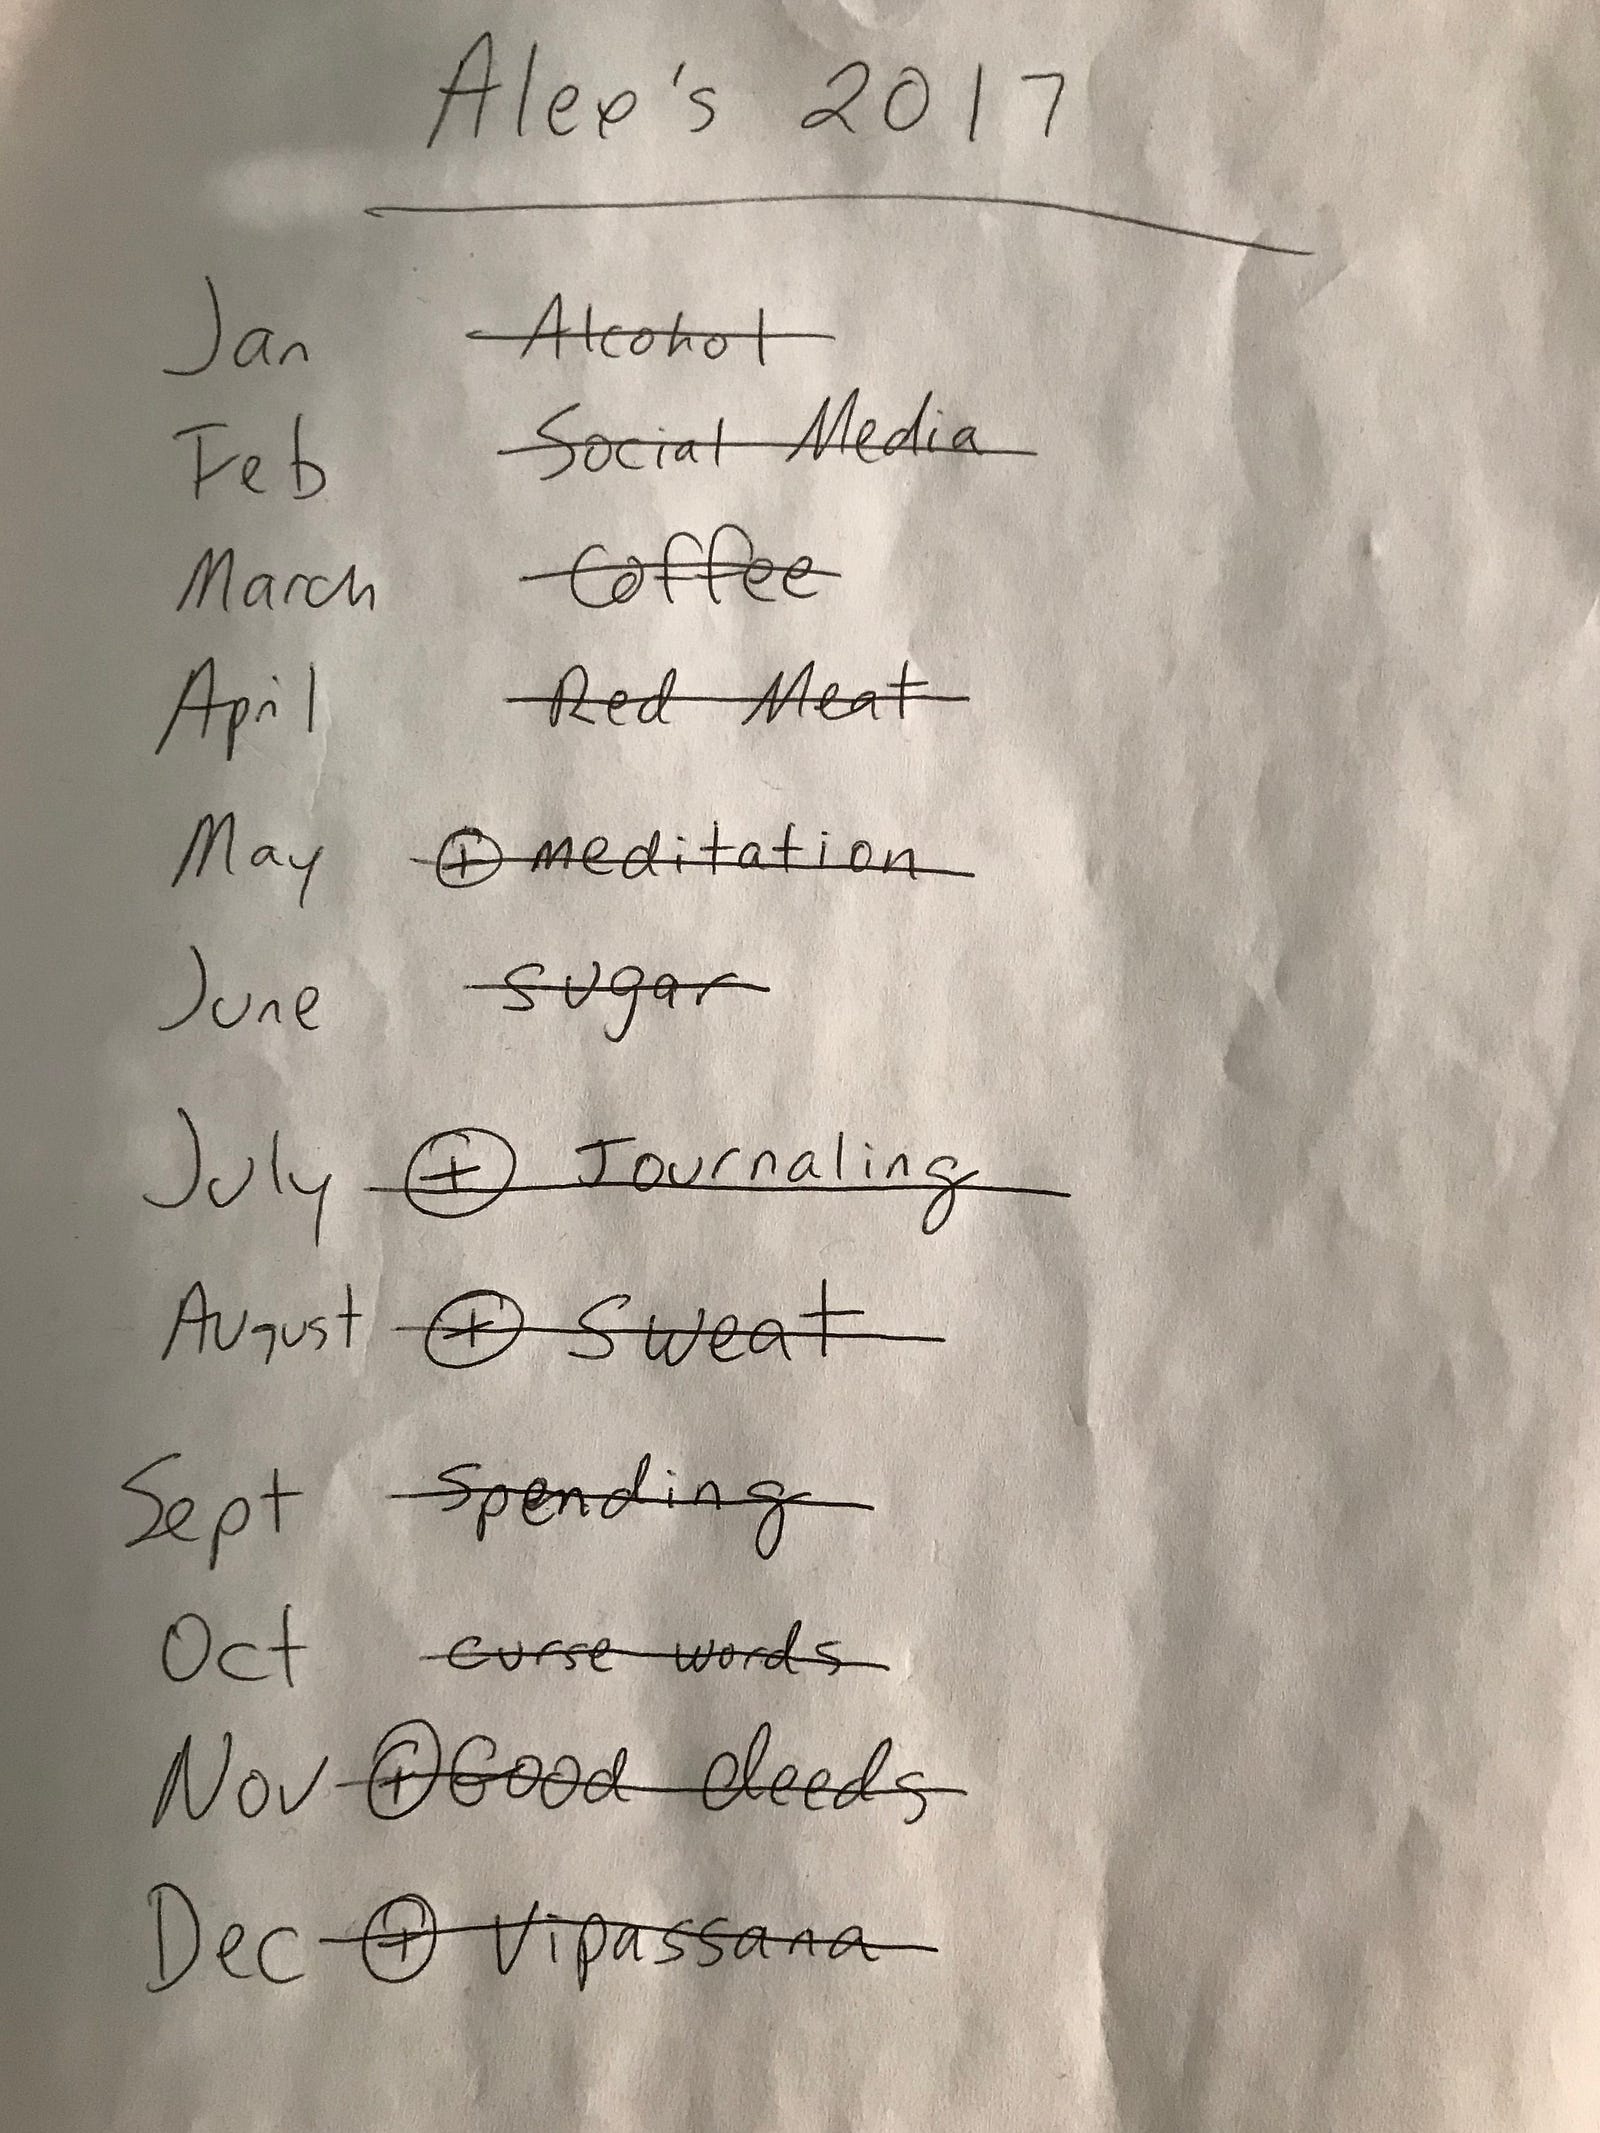 Alex's 2017
Jan Alcohol
Feb Social Media
March Coffee
April Red Meat
May ⊕ meditation
June sugar
July ⊕ Journaling
August ⊕ Sweat
Sept Spending
Oct curse words
Nov ⊕ Good deeds
Dec ⊕ Vipassana